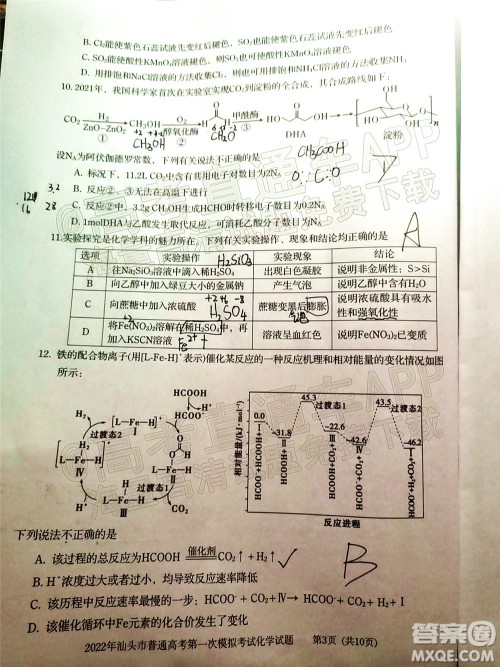 B. Cl₂能使紫色石蕊试液先变红后褪色，SO₂也能使紫色石蕊试液先变红后褪色
C. SO₂能使酸性KMnO₄溶液褪色，则SO₂也可使酸性KMnO₄溶液褪色
D. 用排饱和NaCl溶液的方法收集Cl₂，则也可用排饱和
10. 2021年，我国科学家首次在实验室实现CO₂到淀粉的全合成，其合成路线如下：
CO₂ H₂ ZnO−ZrO₂ ① CH₃OH 醇氧化酶 ② 甲酰酶 ③ HO OH DHA 淀粉
CH₃OH CH₂O CH₃COOH
设Nₐ为阿伏伽德罗常数，下列有关说法不正确的是
A. 标况下，11.2L CO₂中含有共用电子对数目为2Nₐ
B. 反应②、③无法在高温下进行
C. 反应②中，3.2g CH₃OH生成HCHO时转移电子数目为0.2Nₐ
D. 1molDHA与乙酸发生取代反应，可消耗乙酸分子数目为2Nₐ
D
11.实验探究是化学学科的魅力所在。下列有关实验操作、现象和结论均正确的是
A
选项 实验操作 实验现象 结论
H₂SiO₃
A 往Na₂SiO₃溶液中滴入稀H₂SO₄ 出现白色凝胶 说明非金属性：S>Si
B 向乙醇中加入绿豆大小的金属钠 产生气泡 说明乙醇中含有H₂O
C 向蔗糖中加入浓硫酸 蔗糖变黑后膨胀 说明浓硫酸具有吸水性和强氧化性
H₂SO₄
D 将Fe(NO₃)₂溶解在稀H₂SO₄中，再加入KSCN溶液 溶液呈血红色 说明Fe(NO₃)₂已变质
Fe²⁺
12. 铁的配合物离子(用[L-Fe-H]⁺表示)催化某反应的一种反应机理和相对能量的变化情况如图
所示：
HCOOH
[L−Fe−H]⁺ Ⅰ
过渡态2
Ⅱ
过渡态1
Ⅲ
CO₂
Ⅳ
H₂
相对能量/(kJ·mol⁻¹)
0.0 −31.8 45.3 过渡态1 −22.6 −42.6 43.5 过渡态2 −46.2
反应进程
下列说法不正确的是
A. 该过程的总反应为HCOOH 催化剂 CO₂↑+H₂↑ ✓
B
B. H⁺浓度过大或者过小，均导致反应速率降低
C. 该历程中反应速率最慢的步骤为Ⅱ+CO₂+Ⅳ→HCOOH+CO₂+Ⅰ+H₂
D. 该催化循环中Fe元素的化合价发生了变化
2022年汕头市普通高考第一次模拟考试化学试题 第3页（共10页）
高考直通车APP
答案圈
MXQE.COM